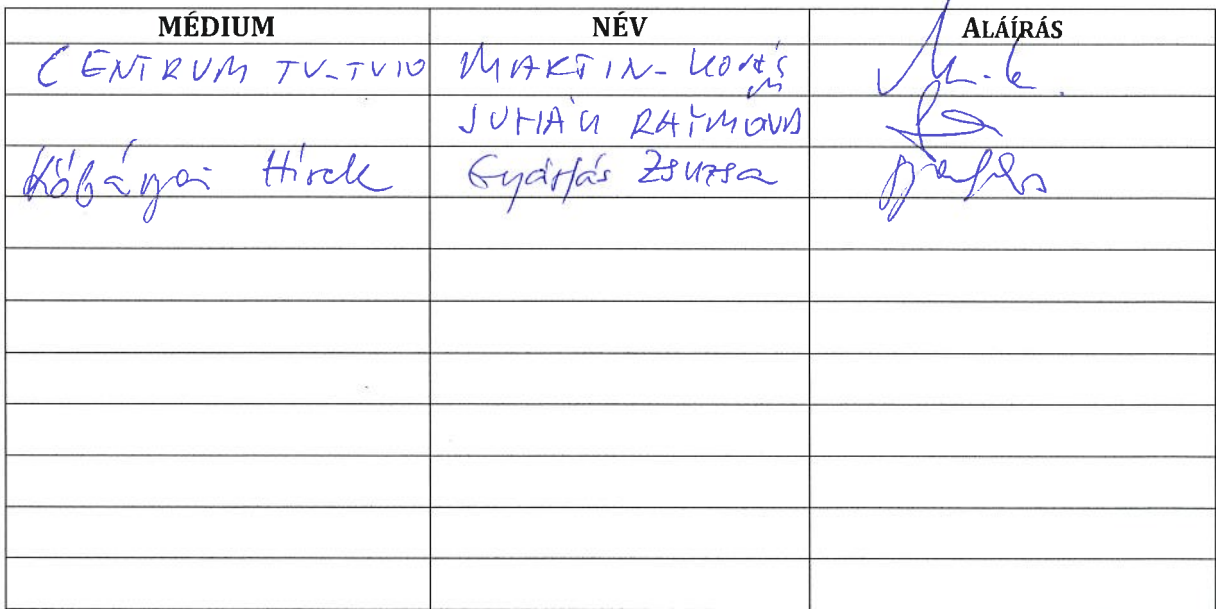 MÉDIUM NÉV ALÁÍRÁS
CENTRUM TV-TV10 MARTIN-KOVÁCS M-K.
JUHÁSZ RAYMOND
Kőbányai Hírek Gyárfás Zsuzsa